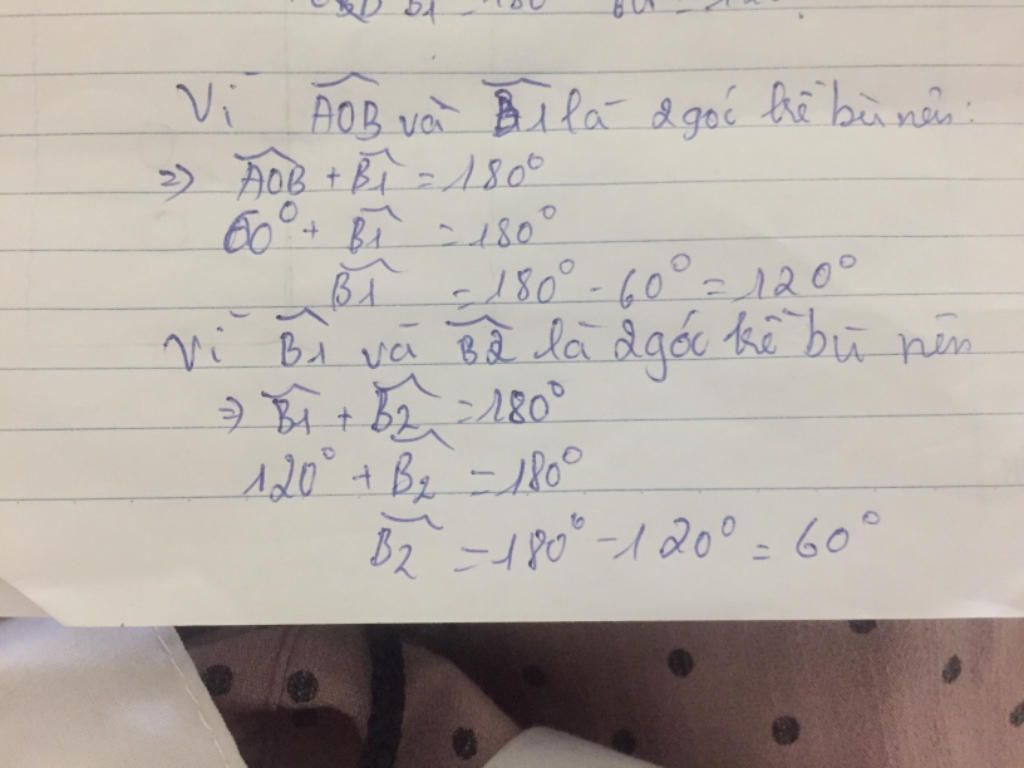 Vì AOB và B1 là 2 góc kề bù nên:
=> AOB + B1 = 180°
60° + B1 = 180°
B1 = 180° - 60° = 120°
Vì B1 và B2 là 2 góc kề bù nên
=> B1 + B2 = 180°
120° + B2 = 180°
B2 = 180° - 120° = 60°